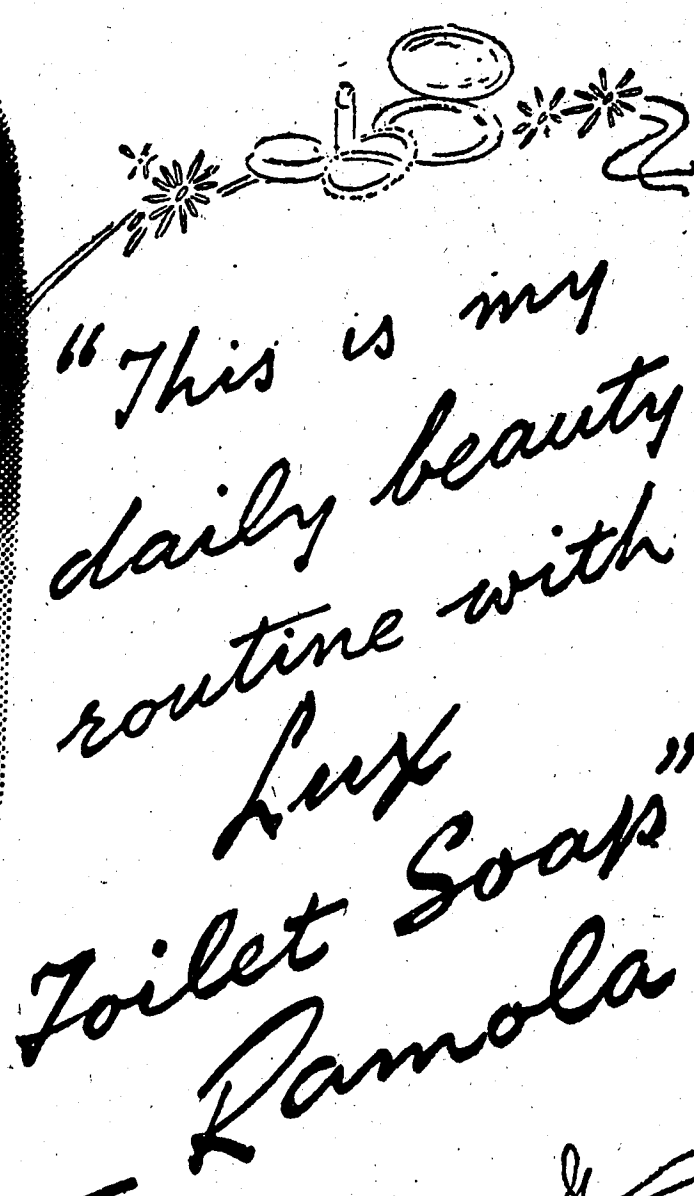 “This is my
daily beauty
routine with
Lux
Toilet Soap”
Ramola